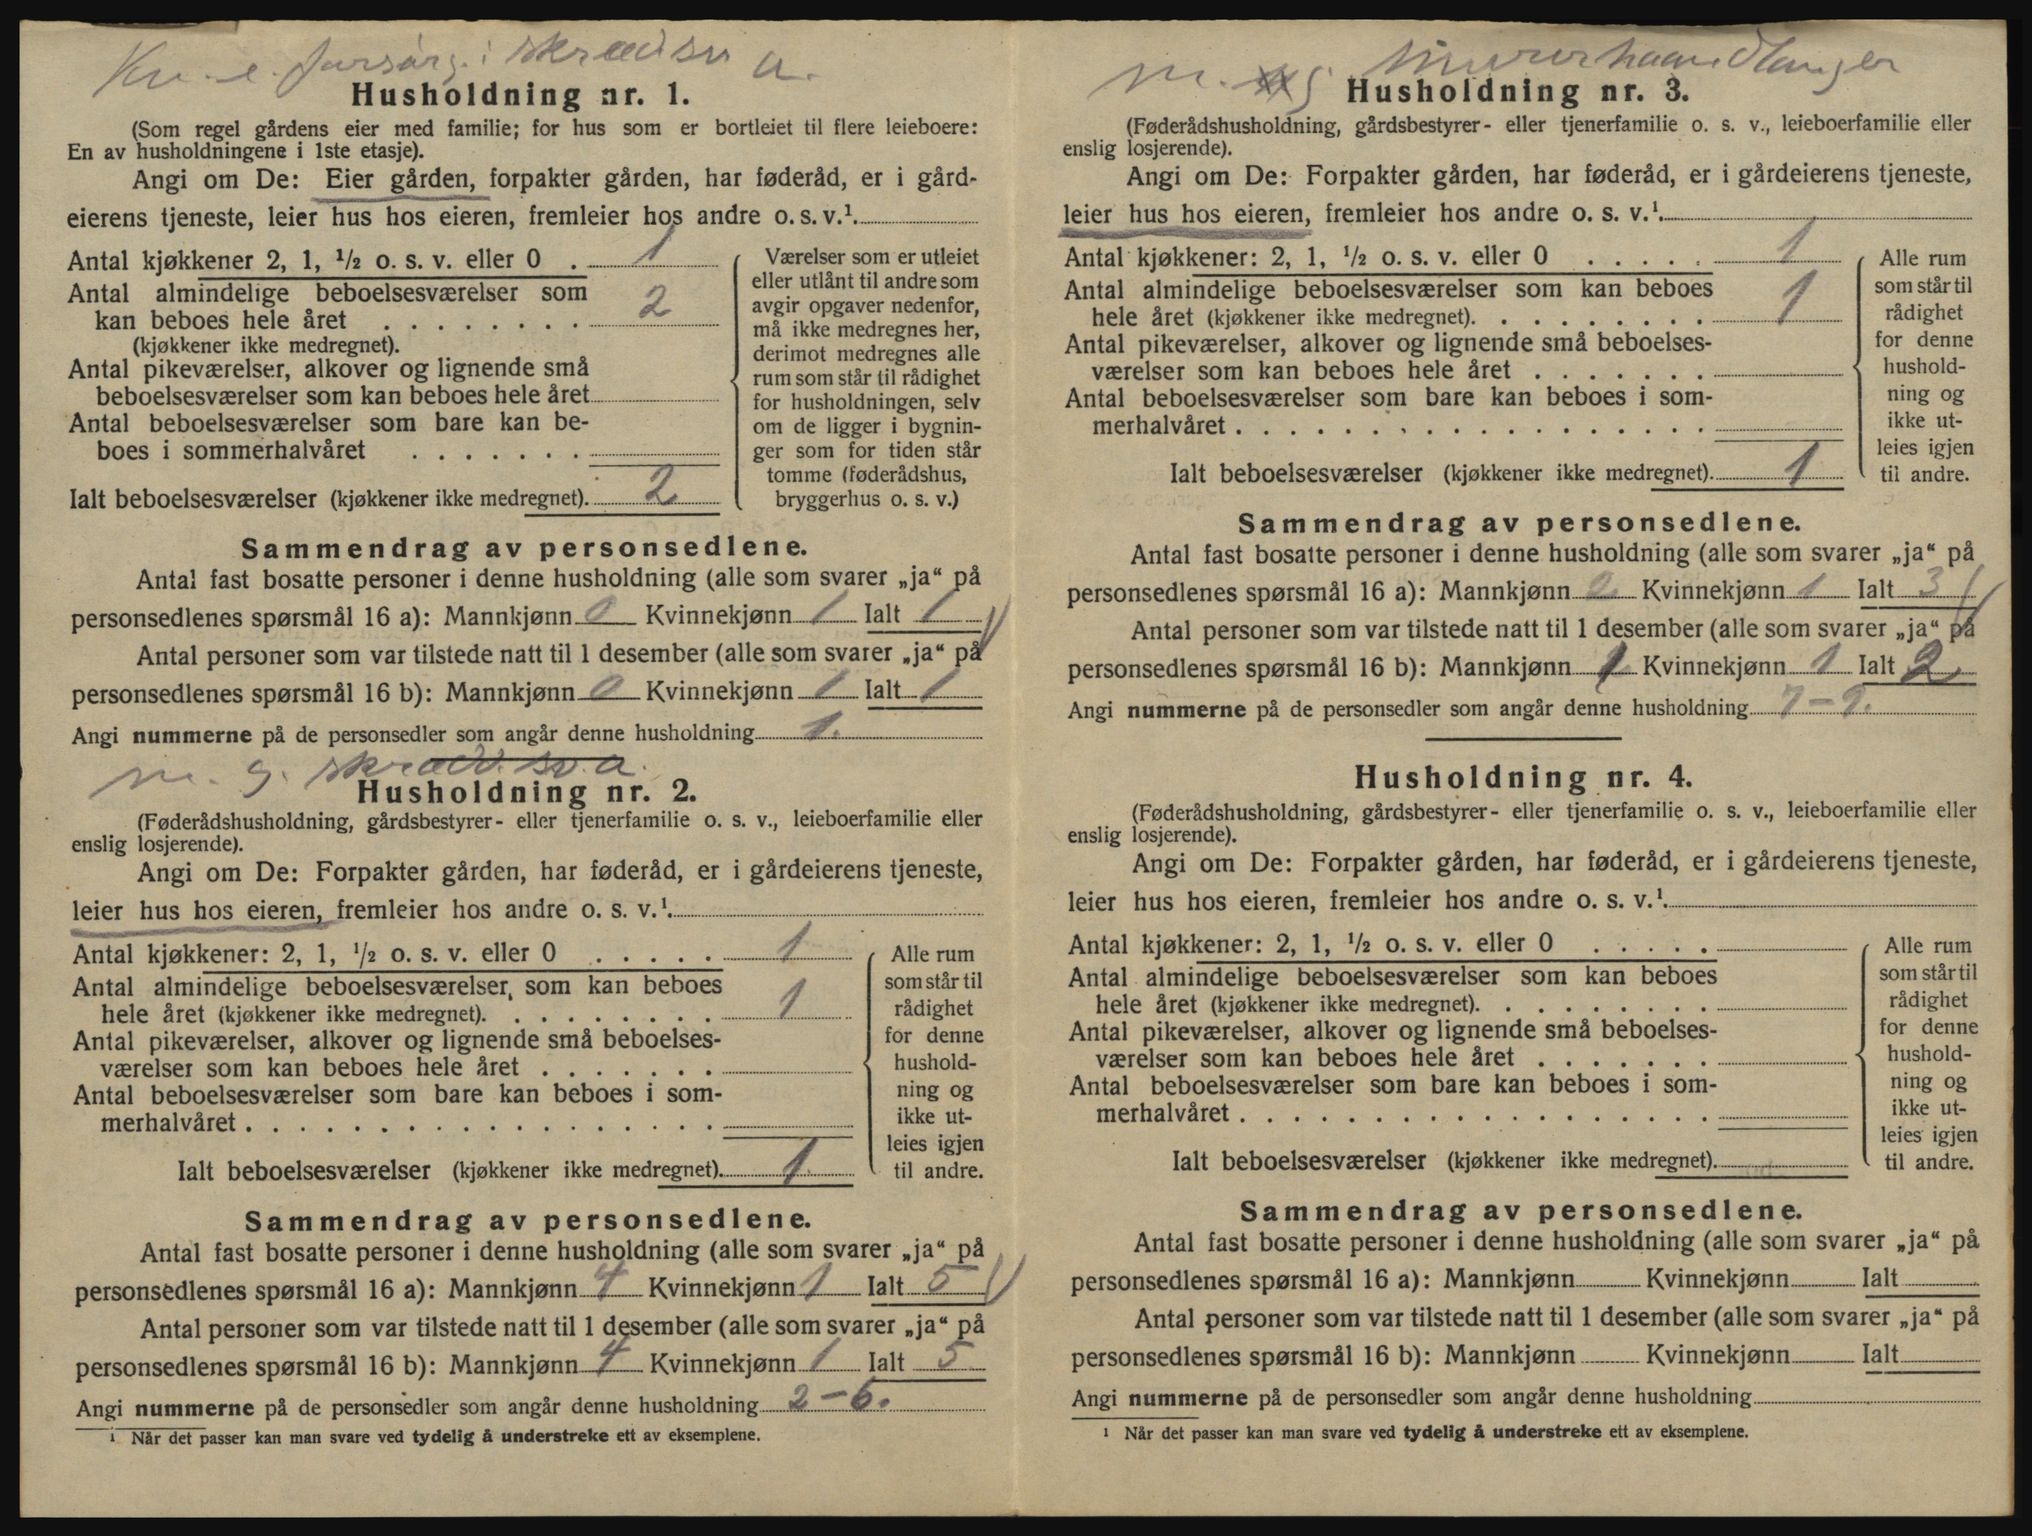 Kv. e. forsørg. i skræd sv a.
Husholdning nr. 1.
(Som regel gårdens eier med familie; for hus som er bortleiet til flere leieboere:
En av husholdningene i 1ste etasje).
Angi om De: Eier gården, forpakter gården, har føderåd, er i gård-
eierens tjeneste, leier hus hos eieren, fremleier hos andre o. s. v.¹.
Antal kjøkkener 2, 1, ½ o. s. v. eller 0 . 1
Antal almindelige beboelsesværelser som
kan beboes hele året . . . . . . . . 2
(kjøkkener ikke medregnet).
Antal pikeværelser, alkover og lignende små
beboelsesværelser som kan beboes hele året
Antal beboelsesværelser som bare kan be-
boes i sommerhalvåret . . . . . . .
Ialt beboelsesværelser (kjøkkener ikke medregnet). 2
Værelser som er utleiet
eller utlånt til andre som
avgir opgaver nedenfor,
må ikke medregnes her,
derimot medregnes alle
rum som står til rådighet
for husholdningen, selv
om de ligger i bygnin-
ger som for tiden står
tomme (føderådshus,
bryggerhus o. s. v.)
Sammendrag av personsedlene.
Antal fast bosatte personer i denne husholdning (alle som svarer „ja“ på
personsedlenes spørsmål 16 a): Mannkjønn 0 Kvinnekjønn 1 Ialt 1
Antal personer som var tilstede natt til 1 desember (alle som svarer „ja“ på
personsedlenes spørsmål 16 b): Mannkjønn 0 Kvinnekjønn 1 Ialt 1
Angi nummerne på de personsedler som angår denne husholdning 1.
m. g. skræd. sv. a.
Husholdning nr. 2.
(Føderådshusholdning, gårdsbestyrer- eller tjenerfamilie o. s. v., leieboerfamilie eller
enslig losjerende).
Angi om De: Forpakter gården, har føderåd, er i gårdeierens tjeneste,
leier hus hos eieren, fremleier hos andre o. s. v.¹.
Antal kjøkkener: 2, 1, ½ o. s. v. eller 0 . . . . . 1
Antal almindelige beboelsesværelser som kan beboes
hele året (kjøkkener ikke medregnet). . . . . . . . . 1
Antal pikeværelser, alkover og lignende små beboelses-
værelser som kan beboes hele året . . . . . . .
Antal beboelsesværelser som bare kan beboes i som-
merhalvåret . . . . . . . . . . . . . . . . . .
Ialt beboelsesværelser (kjøkkener ikke medregnet). 1.
Alle rum
som står til
rådighet
for denne
hushold-
ning og
ikke ut-
leies igjen
til andre.
Sammendrag av personsedlene.
Antal fast bosatte personer i denne husholdning (alle som svarer „ja“ på
personsedlenes spørsmål 16 a): Mannkjønn 4 Kvinnekjønn 1 Ialt 5
Antal personer som var tilstede natt til 1 desember (alle som svarer „ja“ på
personsedlenes spørsmål 16 b): Mannkjønn 4 Kvinnekjønn 1 Ialt 5
Angi nummerne på de personsedler som angår denne husholdning 2-6.
¹ Når det passer kan man svare ved tydelig å understreke ett av eksemplene.
m. g murerhaandlanger
Husholdning nr. 3.
(Føderådshusholdning, gårdsbestyrer- eller tjenerfamilie o. s. v., leieboerfamilie eller
enslig losjerende).
Angi om De: Forpakter gården, har føderåd, er i gårdeierens tjeneste,
leier hus hos eieren, fremleier hos andre o. s. v.¹.
Antal kjøkkener: 2, 1, ½ o. s. v. eller 0 . . . . . 1
Antal almindelige beboelsesværelser som kan beboes
hele året (kjøkkener ikke medregnet). . . . . . . . . 1
Antal pikeværelser, alkover og lignende små beboelses-
værelser som kan beboes hele året . . . . . . .
Antal beboelsesværelser som bare kan beboes i som-
merhalvåret . . . . . . . . . . . . . . . . . .
Ialt beboelsesværelser (kjøkkener ikke medregnet). 1
Alle rum
som står til
rådighet
for denne
hushold-
ning og
ikke ut-
leies igjen
til andre.
Sammendrag av personsedlene.
Antal fast bosatte personer i denne husholdning (alle som svarer „ja“ på
personsedlenes spørsmål 16 a): Mannkjønn 2 Kvinnekjønn 1 Ialt 3
Antal personer som var tilstede natt til 1 desember (alle som svarer „ja“ på
personsedlenes spørsmål 16 b): Mannkjønn 1 Kvinnekjønn 1 Ialt 2
Angi nummerne på de personsedler som angår denne husholdning 7-9.
Husholdning nr. 4.
(Føderådshusholdning, gårdsbestyrer- eller tjenerfamilie o. s. v., leieboerfamilie eller
enslig losjerende).
Angi om De: Forpakter gården, har føderåd, er i gårdeierens tjeneste,
leier hus hos eieren, fremleier hos andre o. s. v.¹.
Antal kjøkkener: 2, 1, ½ o. s. v. eller 0 . . . . .
Antal almindelige beboelsesværelser som kan beboes
hele året (kjøkkener ikke medregnet). . . . . . . . .
Antal pikeværelser, alkover og lignende små beboelses-
værelser som kan beboes hele året . . . . . . .
Antal beboelsesværelser som bare kan beboes i som-
merhalvåret . . . . . . . . . . . . . . . . . .
Ialt beboelsesværelser (kjøkkener ikke medregnet).
Alle rum
som står til
rådighet
for denne
hushold-
ning og
ikke ut-
leies igjen
til andre.
Sammendrag av personsedlene.
Antal fast bosatte personer i denne husholdning (alle som svarer „ja“ på
personsedlenes spørsmål 16 a): Mannkjønn Kvinnekjønn Ialt
Antal personer som var tilstede natt til 1 desember (alle som svarer „ja“ på
personsedlenes spørsmål 16 b): Mannkjønn Kvinnekjønn Ialt
Angi nummerne på de personsedler som angår denne husholdning
¹ Når det passer kan man svare ved tydelig å understreke ett av eksemplene.